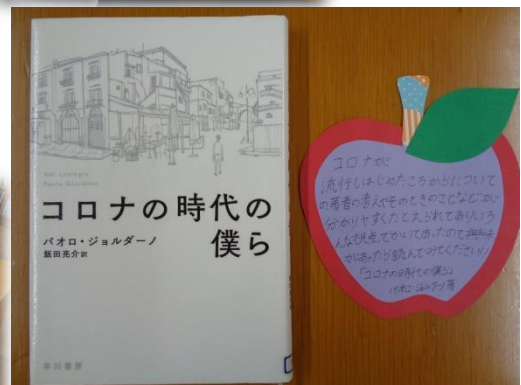 Nel contagio
Paolo Giordano
コロナの時代の
僕ら
パオロ・ジョルダーノ
飯田亮介 訳
早川書房
コロナが
流行しはじめたころからについて
の著者の考えやそのときのことなどが
分かりやすくたとえられてありいろ
んな視点でかいてあったので興味
があったら読んでみてください!
「コロナの時代の僕ら」
パオロ・ジョルダーノ著